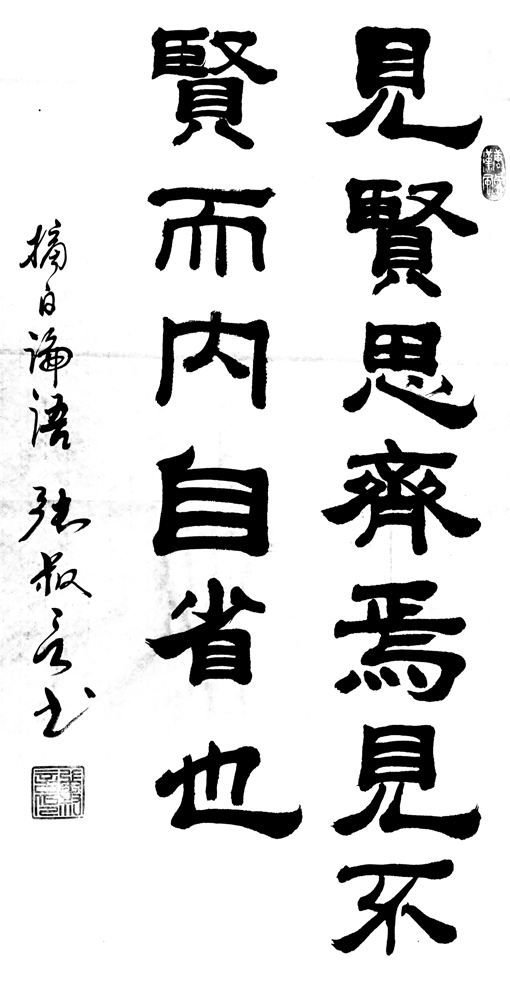 見賢思齊焉見不
賢而內自省也
摘自論語 張叔言书